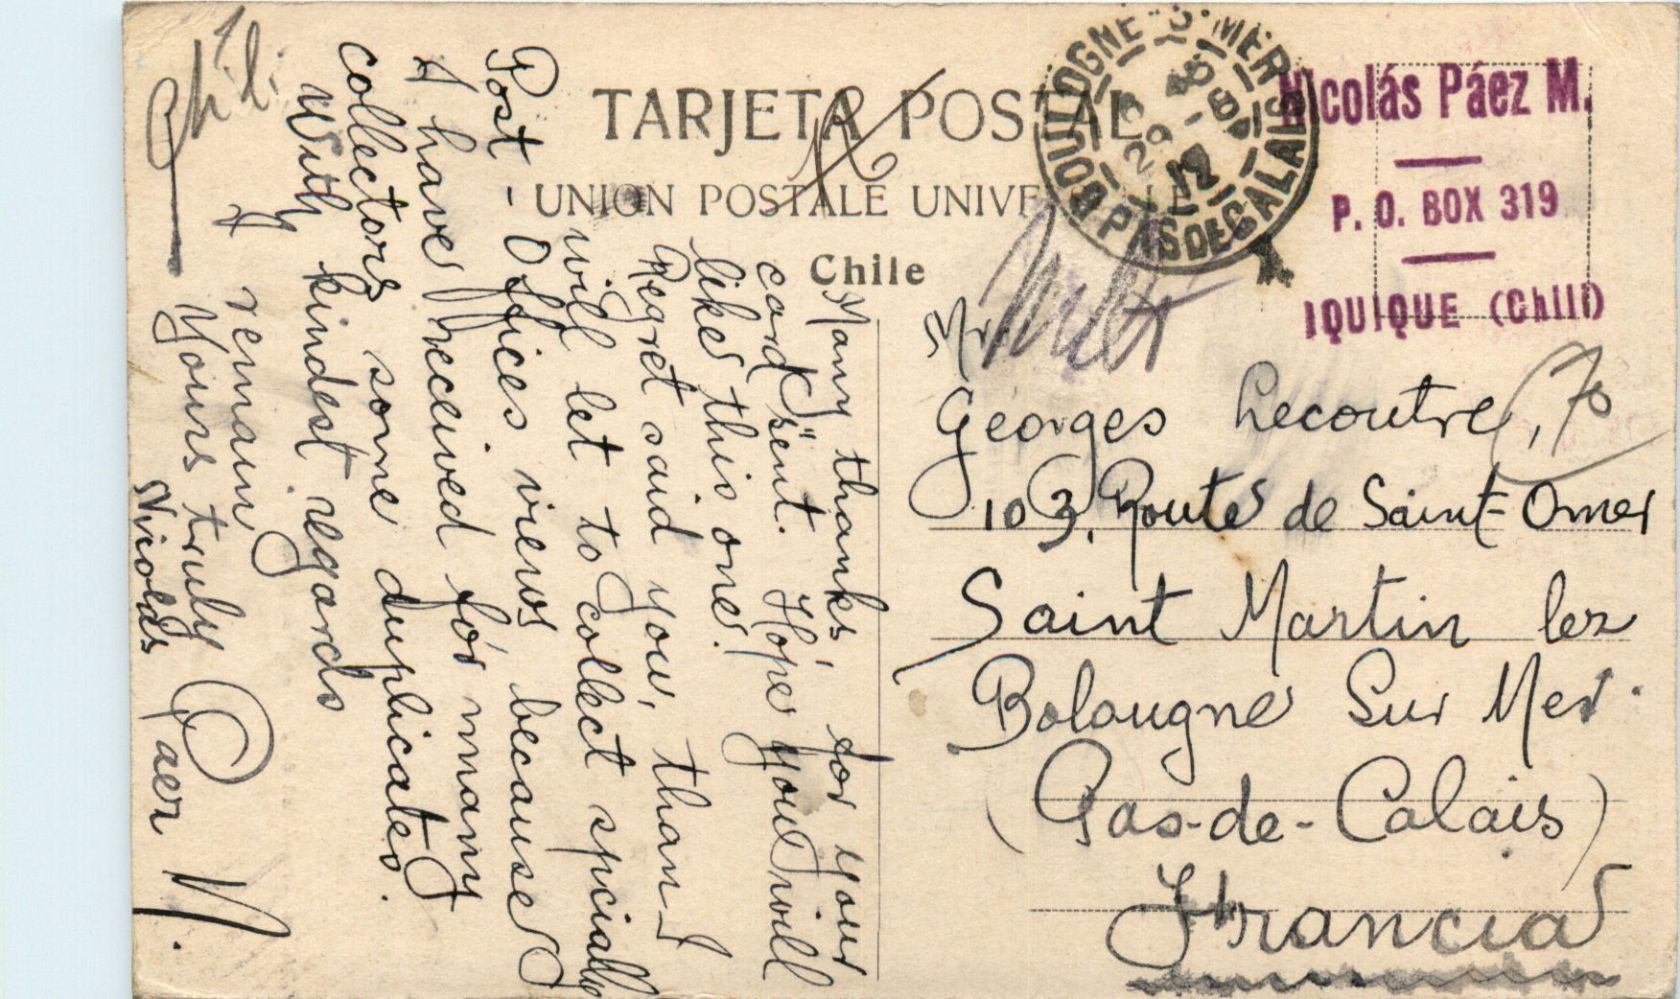 TARJETA POSTAL
UNION POSTALE UNIVERSELLE
Chile
BOULOGNE-S-MER
PAS DE CALAIS
Nicolás Páez M.
P. O. BOX 319
IQUIQUE (Chili)
70
Mr.
Georges Lecoutre,
103, Route de Saint-Omer
Saint Martin lez
Bolougne Sur Mer.
(Pas-de-Calais)
Francia
Many thanks, for your
card "sent. Hope you will
like this one.
Regret said you, than I
will let to collect spcially
Post-Offices views because
I have received for many
collectors some duplicates.
With kindest regards
I remain
Yours truly
Nicolás Paez M.
Chili